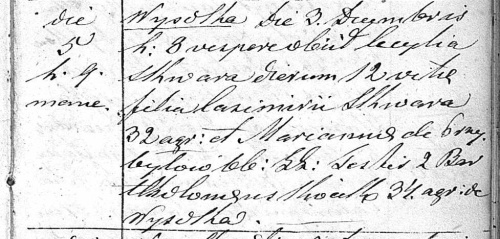 die
5
h. 9.
mane.
Wysotka die 3. Decembris
h: 8 vespere obiit Cecylia
Skwara dierum 12 vitae
filia Casimirii Skwara
32 agr: et Mariannae de Przy
bytow CC: LL: Testis 2 Bar
tholomeus 34. agr: de
Wysotka.